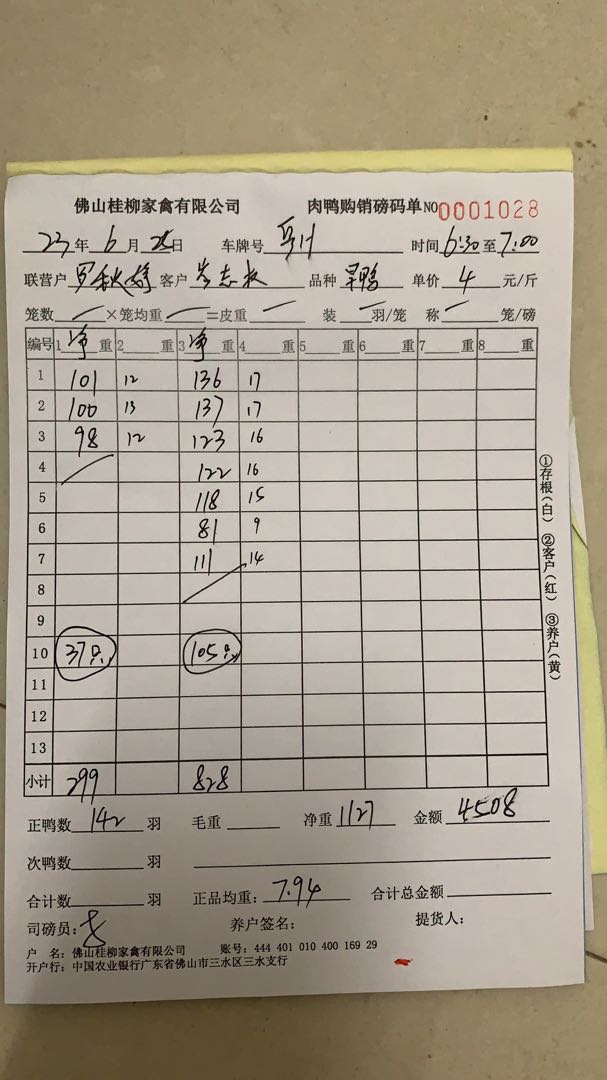 佛山桂柳家禽有限公司 肉鸭购销磅码单 NO 0001028
23年 6月 日 车牌号 时间 6:30 至 7:00
联营户 罗秋婷 客户 岑志权 品种 旱鸭 单价 4 元/斤
笼数 ×笼均重 =皮重 装 羽/笼 称 笼/磅
编号 1 净 重 2 重 3 净 重 4 重 5 重 6 重 7 重 8 重
1 101 12 136 17
2 100 13 137 17
3 98 12 123 16
4 122 16
5 118 15
6 81 9
7 111 14
8
9
10 37只 105只
11
12
13
小计 299 828
①存根(白) ②客户(红) ③养户(黄)
正鸭数 142 羽 毛重 净重 1127 金额 4508
次鸭数 羽
合计数 羽 正品均重: 7.94 合计总金额
司磅员: 养户签名: 提货人:
户 名: 佛山桂柳家禽有限公司 账号: 444 401 010 400 169 29
开户行: 中国农业银行广东省佛山市三水区三水支行